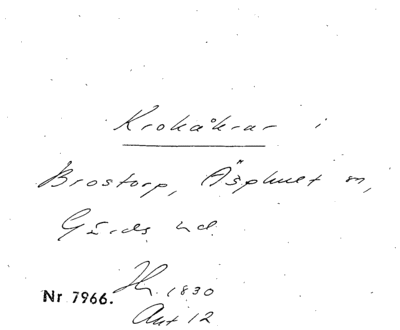 Krokåkrar i
Brostorp, Äsphult sn,
Gärds hd.
Nr 7966.
1830
Akt 12